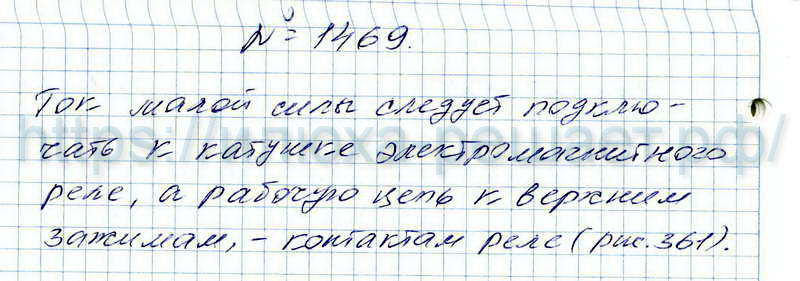 № 1469.
Ток малой силы следует подклю-
чать к катушке электромагнитного
реле, а рабочую цепь к верхним
зажимам, - контактам реле (рис. 361).